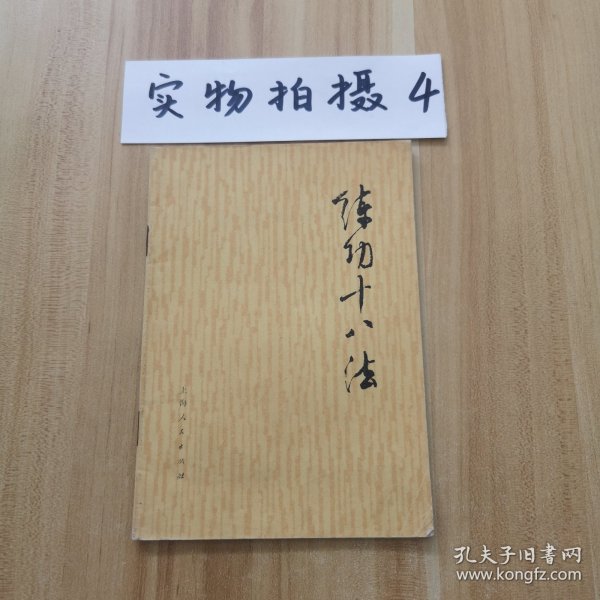 实物拍摄4
练功十八法
上海人民出版社
孔夫子旧書网
www.kongfz.com